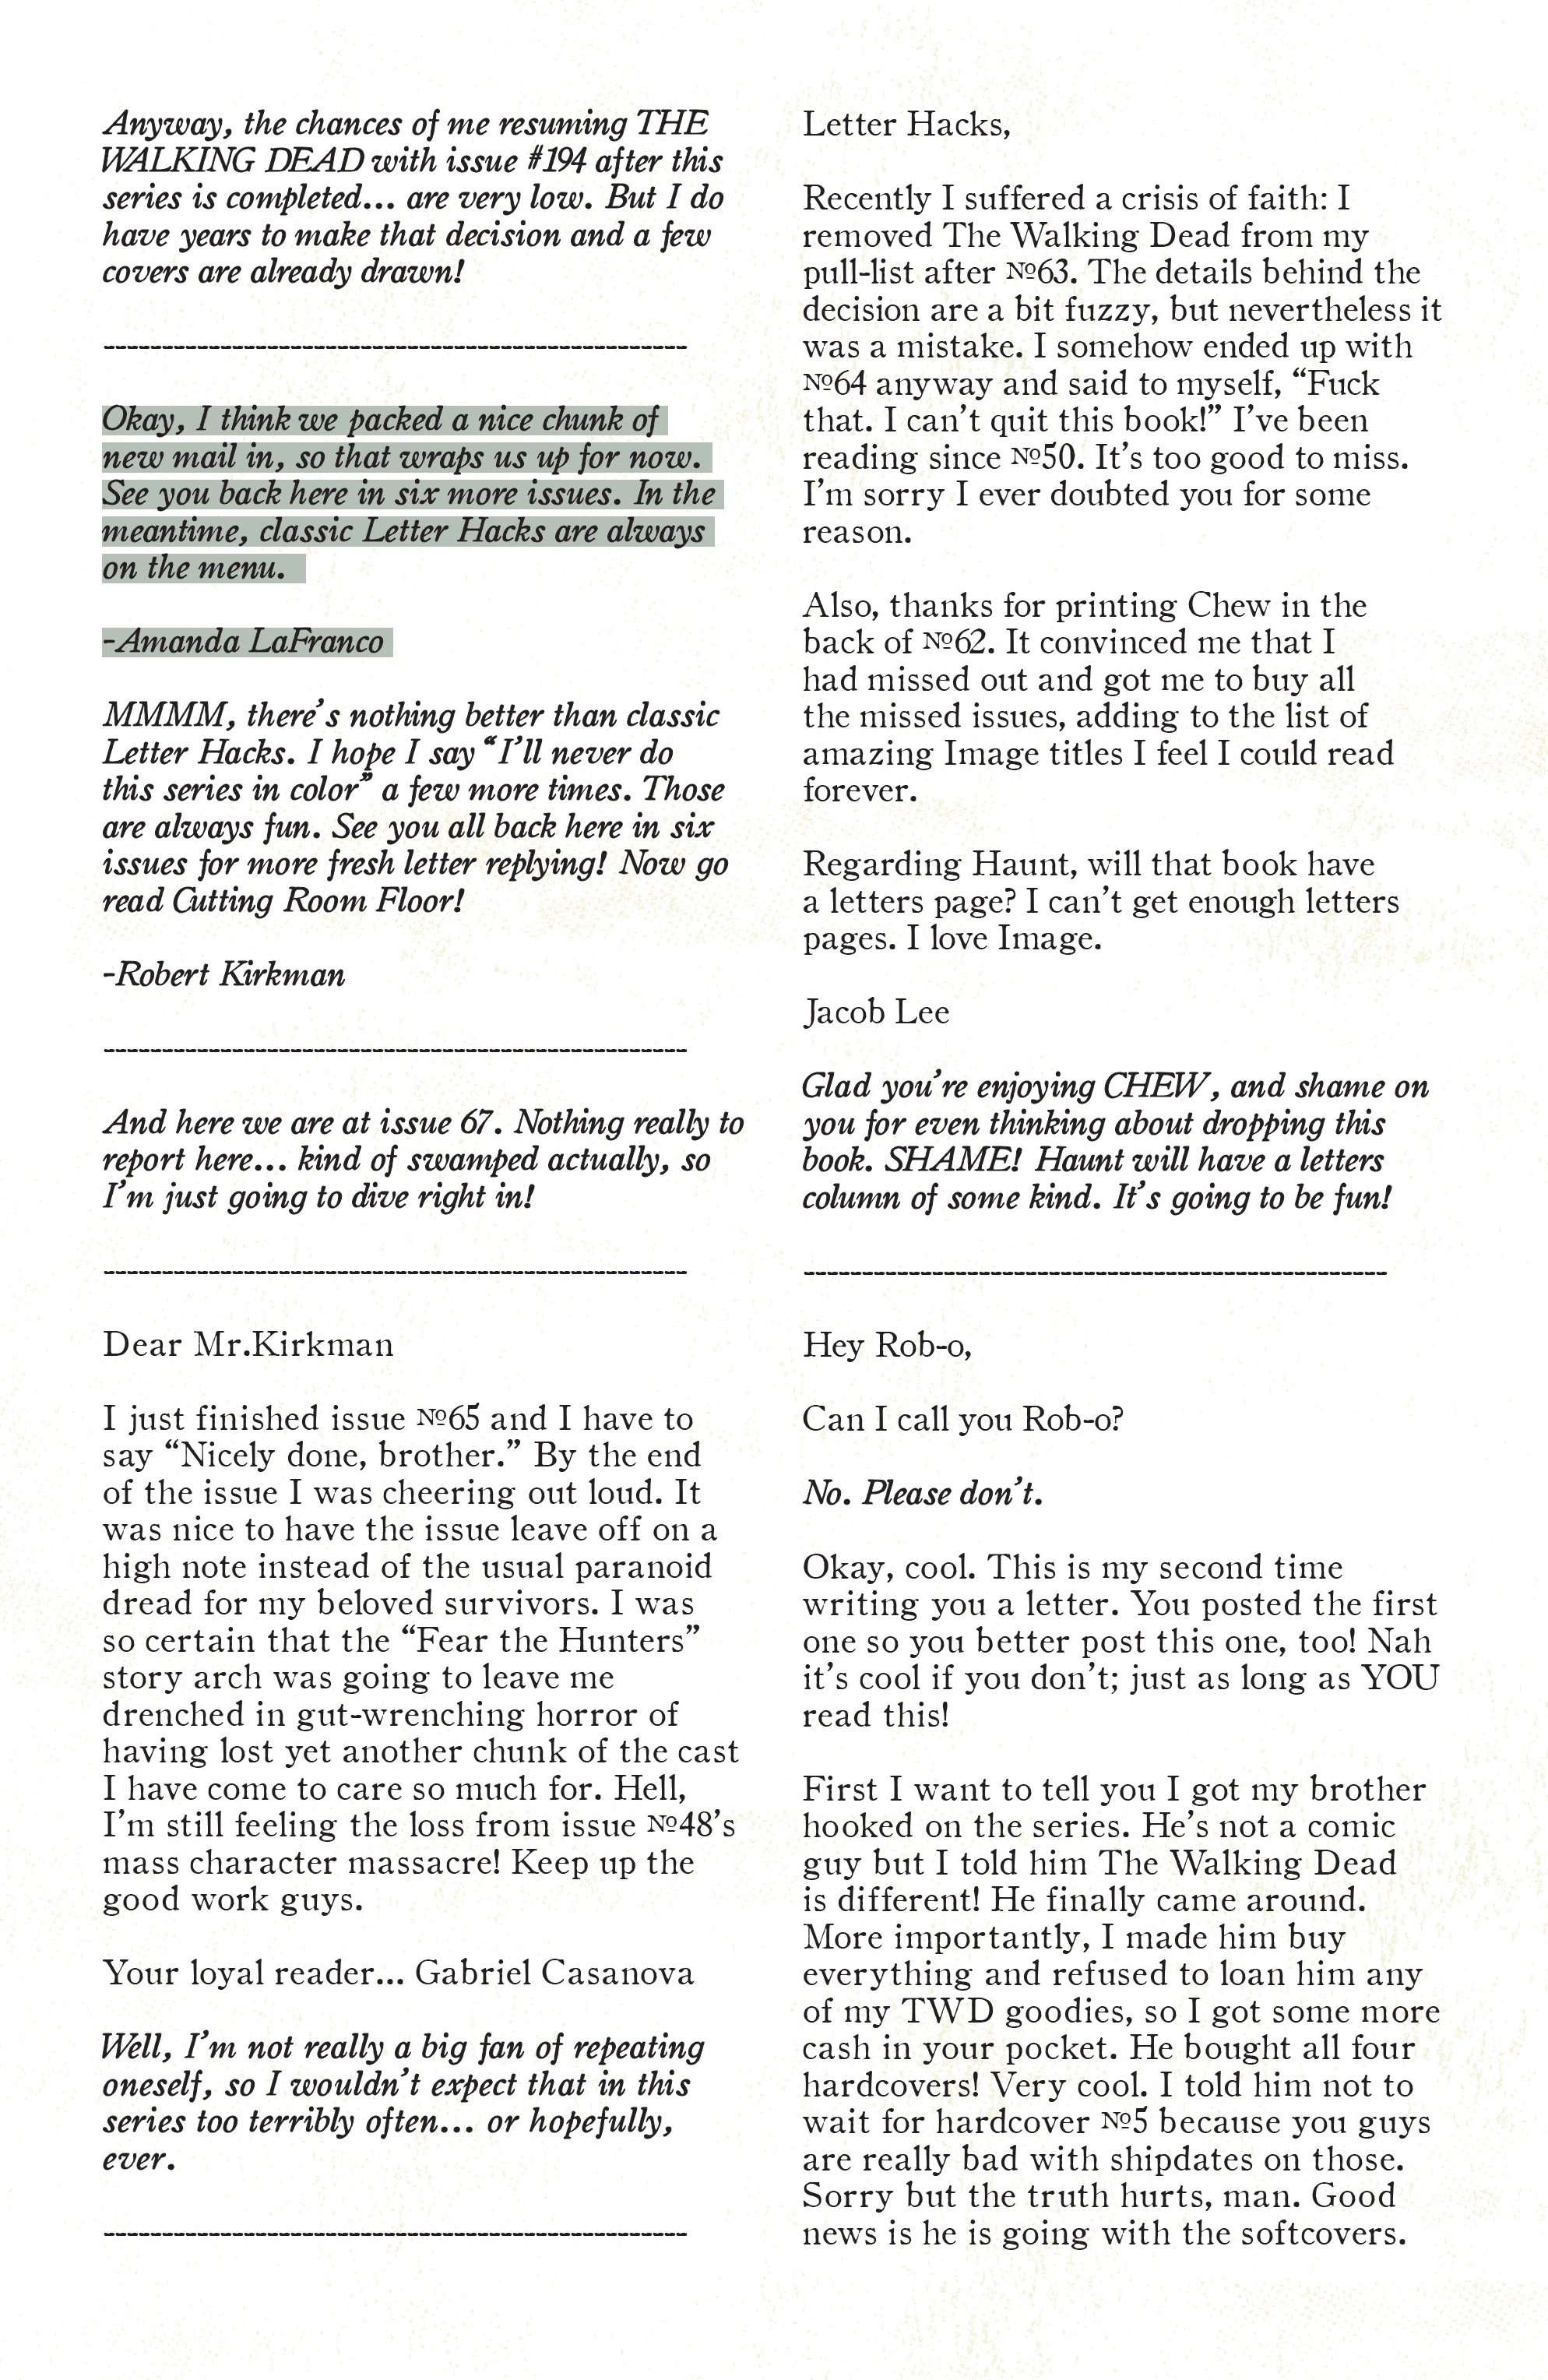 Anyway, the chances of me resuming THE
WALKING DEAD with issue #194 after this
series is completed... are very low. But I do
have years to make that decision and a few
covers are already drawn!
--------------------------------------------------
Okay, I think we packed a nice chunk of
new mail in, so that wraps us up for now.
See you back here in six more issues. In the
meantime, classic Letter Hacks are always
on the menu.
-Amanda LaFranco
MMMM, there’s nothing better than classic
Letter Hacks. I hope I say “I’ll never do
this series in color” a few more times. Those
are always fun. See you all back here in six
issues for more fresh letter replying! Now go
read Cutting Room Floor!
-Robert Kirkman
--------------------------------------------------
And here we are at issue 67. Nothing really to
report here... kind of swamped actually, so
I’m just going to dive right in!
--------------------------------------------------
Dear Mr.Kirkman
I just finished issue №65 and I have to
say “Nicely done, brother.” By the end
of the issue I was cheering out loud. It
was nice to have the issue leave off on a
high note instead of the usual paranoid
dread for my beloved survivors. I was
so certain that the “Fear the Hunters”
story arch was going to leave me
drenched in gut-wrenching horror of
having lost yet another chunk of the cast
I have come to care so much for. Hell,
I’m still feeling the loss from issue №48’s
mass character massacre! Keep up the
good work guys.
Your loyal reader... Gabriel Casanova
Well, I’m not really a big fan of repeating
oneself, so I wouldn’t expect that in this
series too terribly often... or hopefully,
ever.
--------------------------------------------------
Letter Hacks,
Recently I suffered a crisis of faith: I
removed The Walking Dead from my
pull-list after №63. The details behind the
decision are a bit fuzzy, but nevertheless it
was a mistake. I somehow ended up with
№64 anyway and said to myself, “Fuck
that. I can’t quit this book!” I’ve been
reading since №50. It’s too good to miss.
I’m sorry I ever doubted you for some
reason.
Also, thanks for printing Chew in the
back of №62. It convinced me that I
had missed out and got me to buy all
the missed issues, adding to the list of
amazing Image titles I feel I could read
forever.
Regarding Haunt, will that book have
a letters page? I can’t get enough letters
pages. I love Image.
Jacob Lee
Glad you’re enjoying CHEW, and shame on
you for even thinking about dropping this
book. SHAME! Haunt will have a letters
column of some kind. It’s going to be fun!
--------------------------------------------------
Hey Rob-o,
Can I call you Rob-o?
No. Please don’t.
Okay, cool. This is my second time
writing you a letter. You posted the first
one so you better post this one, too! Nah
it’s cool if you don’t; just as long as YOU
read this!
First I want to tell you I got my brother
hooked on the series. He’s not a comic
guy but I told him The Walking Dead
is different! He finally came around.
More importantly, I made him buy
everything and refused to loan him any
of my TWD goodies, so I got some more
cash in your pocket. He bought all four
hardcovers! Very cool. I told him not to
wait for hardcover №5 because you guys
are really bad with shipdates on those.
Sorry but the truth hurts, man. Good
news is he is going with the softcovers.